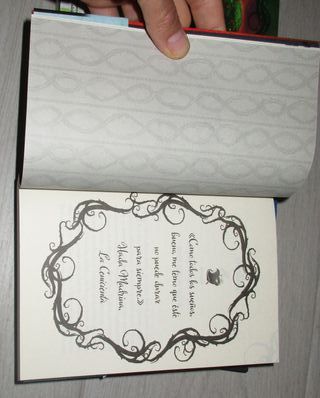 «Como todos los sueños,
bueno, me temo que éste
no puede durar
para siempre.»
Hada Madrina,
La Cenicienta